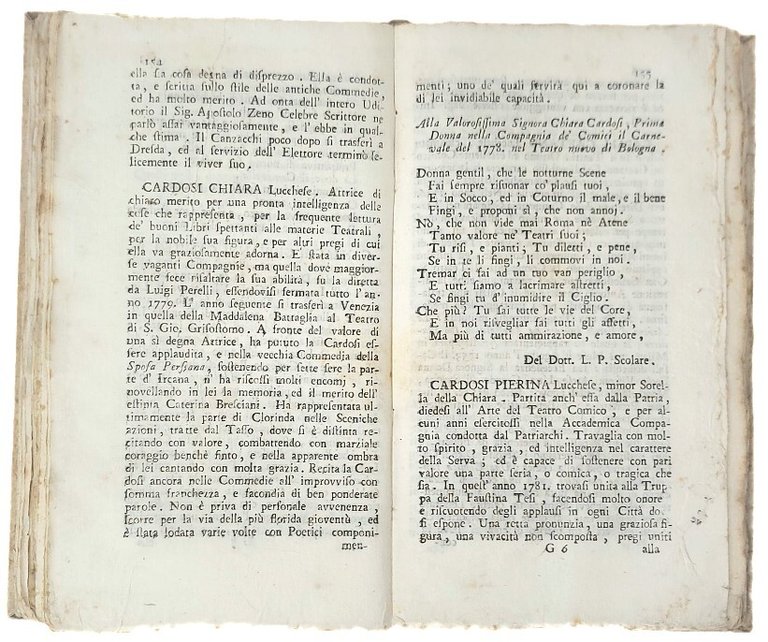 154
ella sia cosa degna di disprezzo. Ella è condot-
ta, e scritta sullo stile delle antiche Commedie,
ed ha molto merito. Ad onta dell' intero Udi-
torio il Sig. Apostolo Zeno Celebre Scrittore ne
parlò assai vantaggiosamente, e l' ebbe in qual-
che stima. Il Canzacchi poco dopo si trasferì a
Dresda, ed al servizio dell' Elettore terminò fe-
licemente il viver suo.
CARDOSI CHIARA Lucchese. Attrice di
chiaro merito per una pronta intelligenza delle
cose che rappresenta, per la frequente lettura
de' buoni Libri spettanti alle materie Teatrali,
per la nobile sua figura, e per altri pregi di cui
ella va graziosamente adorna. E' stata in diver-
se vaganti Compagnie, ma quella dove maggior-
mente fece risaltare la sua abilità, fu la diretta
da Luigi Perelli, essendovisi fermata tutto l' an-
no 1779. L' anno seguente si trasferì a Venezia
in quella della Maddalena Battaglia al Teatro
di S. Gio. Grisostomo. A fronte del valore di
una sì degna Attrice, ha potuto la Cardosi es-
sere applaudita, e nella vecchia Commedia della
Sposa Persiana, sostenendo per sette sere la par-
te d' Ircana, n' ha riscossi molti encomj, ri-
novellando in lei la memoria, ed il merito dell'
estinta Caterina Bresciani. Ha rappresentata ul-
timamente la parte di Clorinda nelle Sceniche
azioni, tratte dal Tasso, dove si è distinta re-
citando con valore, combattendo con marziale
coraggio benchè finto, e nella apparente ombra
di lei cantando con molta grazia. Recita la Car-
dosi ancora nelle Commedie all' improvviso con
somma franchezza, e facondia di ben ponderate
parole. Non è priva di personale avvenenza,
scorre per la via della più florida gioventù, ed
è stata lodata varie volte con Poetici componi-
men-
155
menti; uno de' quali servirà qui a coronare la
di lei invidiabile capacità.
Alla Valorosissima Signora Chiara Cardosi, Prima
Donna nella Compagnia de' Comici il Carne-
vale del 1778. nel Teatro nuovo di Bologna.
Donna gentil, che le notturne Scene
Fai sempre risuonar co' plausi tuoi,
E in Socco, ed in Coturno il male, e il bene
Fingi, e proponi sì, che non annoj.
Nò, che non vide mai Roma nè Atene
Tanto valore ne' Teatri suoi;
Tu risi, e pianti; Tu diletti, e pene,
Se in te li fingi, li commovi in noi.
Tremar ci fai ad un tuo van periglio,
E tutti siamo a lacrimare astretti,
Se fingi tu d' inumidire il Ciglio.
Che più? Tu sai tutte le vie del Core,
E in noi risvegliar fai tutti gli affetti,
Ma più di tutti ammirazione, e amore,
Del Dott. L. P. Scolare.
CARDOSI PIERINA Lucchese, minor Sorel-
la della Chiara. Partita anch' essa dalla Patria,
diedesi all' Arte del Teatro Comico, e per al-
cuni anni esercitossi nella Accademica Compa-
gnia condotta dal Patriarchi. Travaglia con mol-
to spirito, grazia, ed intelligenza nel carattere
della Serva; ed è capace di sostenere con pari
valore una parte seria, o comica, o tragica che
sia. In quest' anno 1781. trovasi unita alla Trup-
pa della Faustina Tesi, facendosi molto onore
e riscuotendo degli applausi in ogni Città do
si espone. Una retta pronunzia, una graziosa fi-
gura, una vivacità non scomposta, pregi uniti
G 6 alla